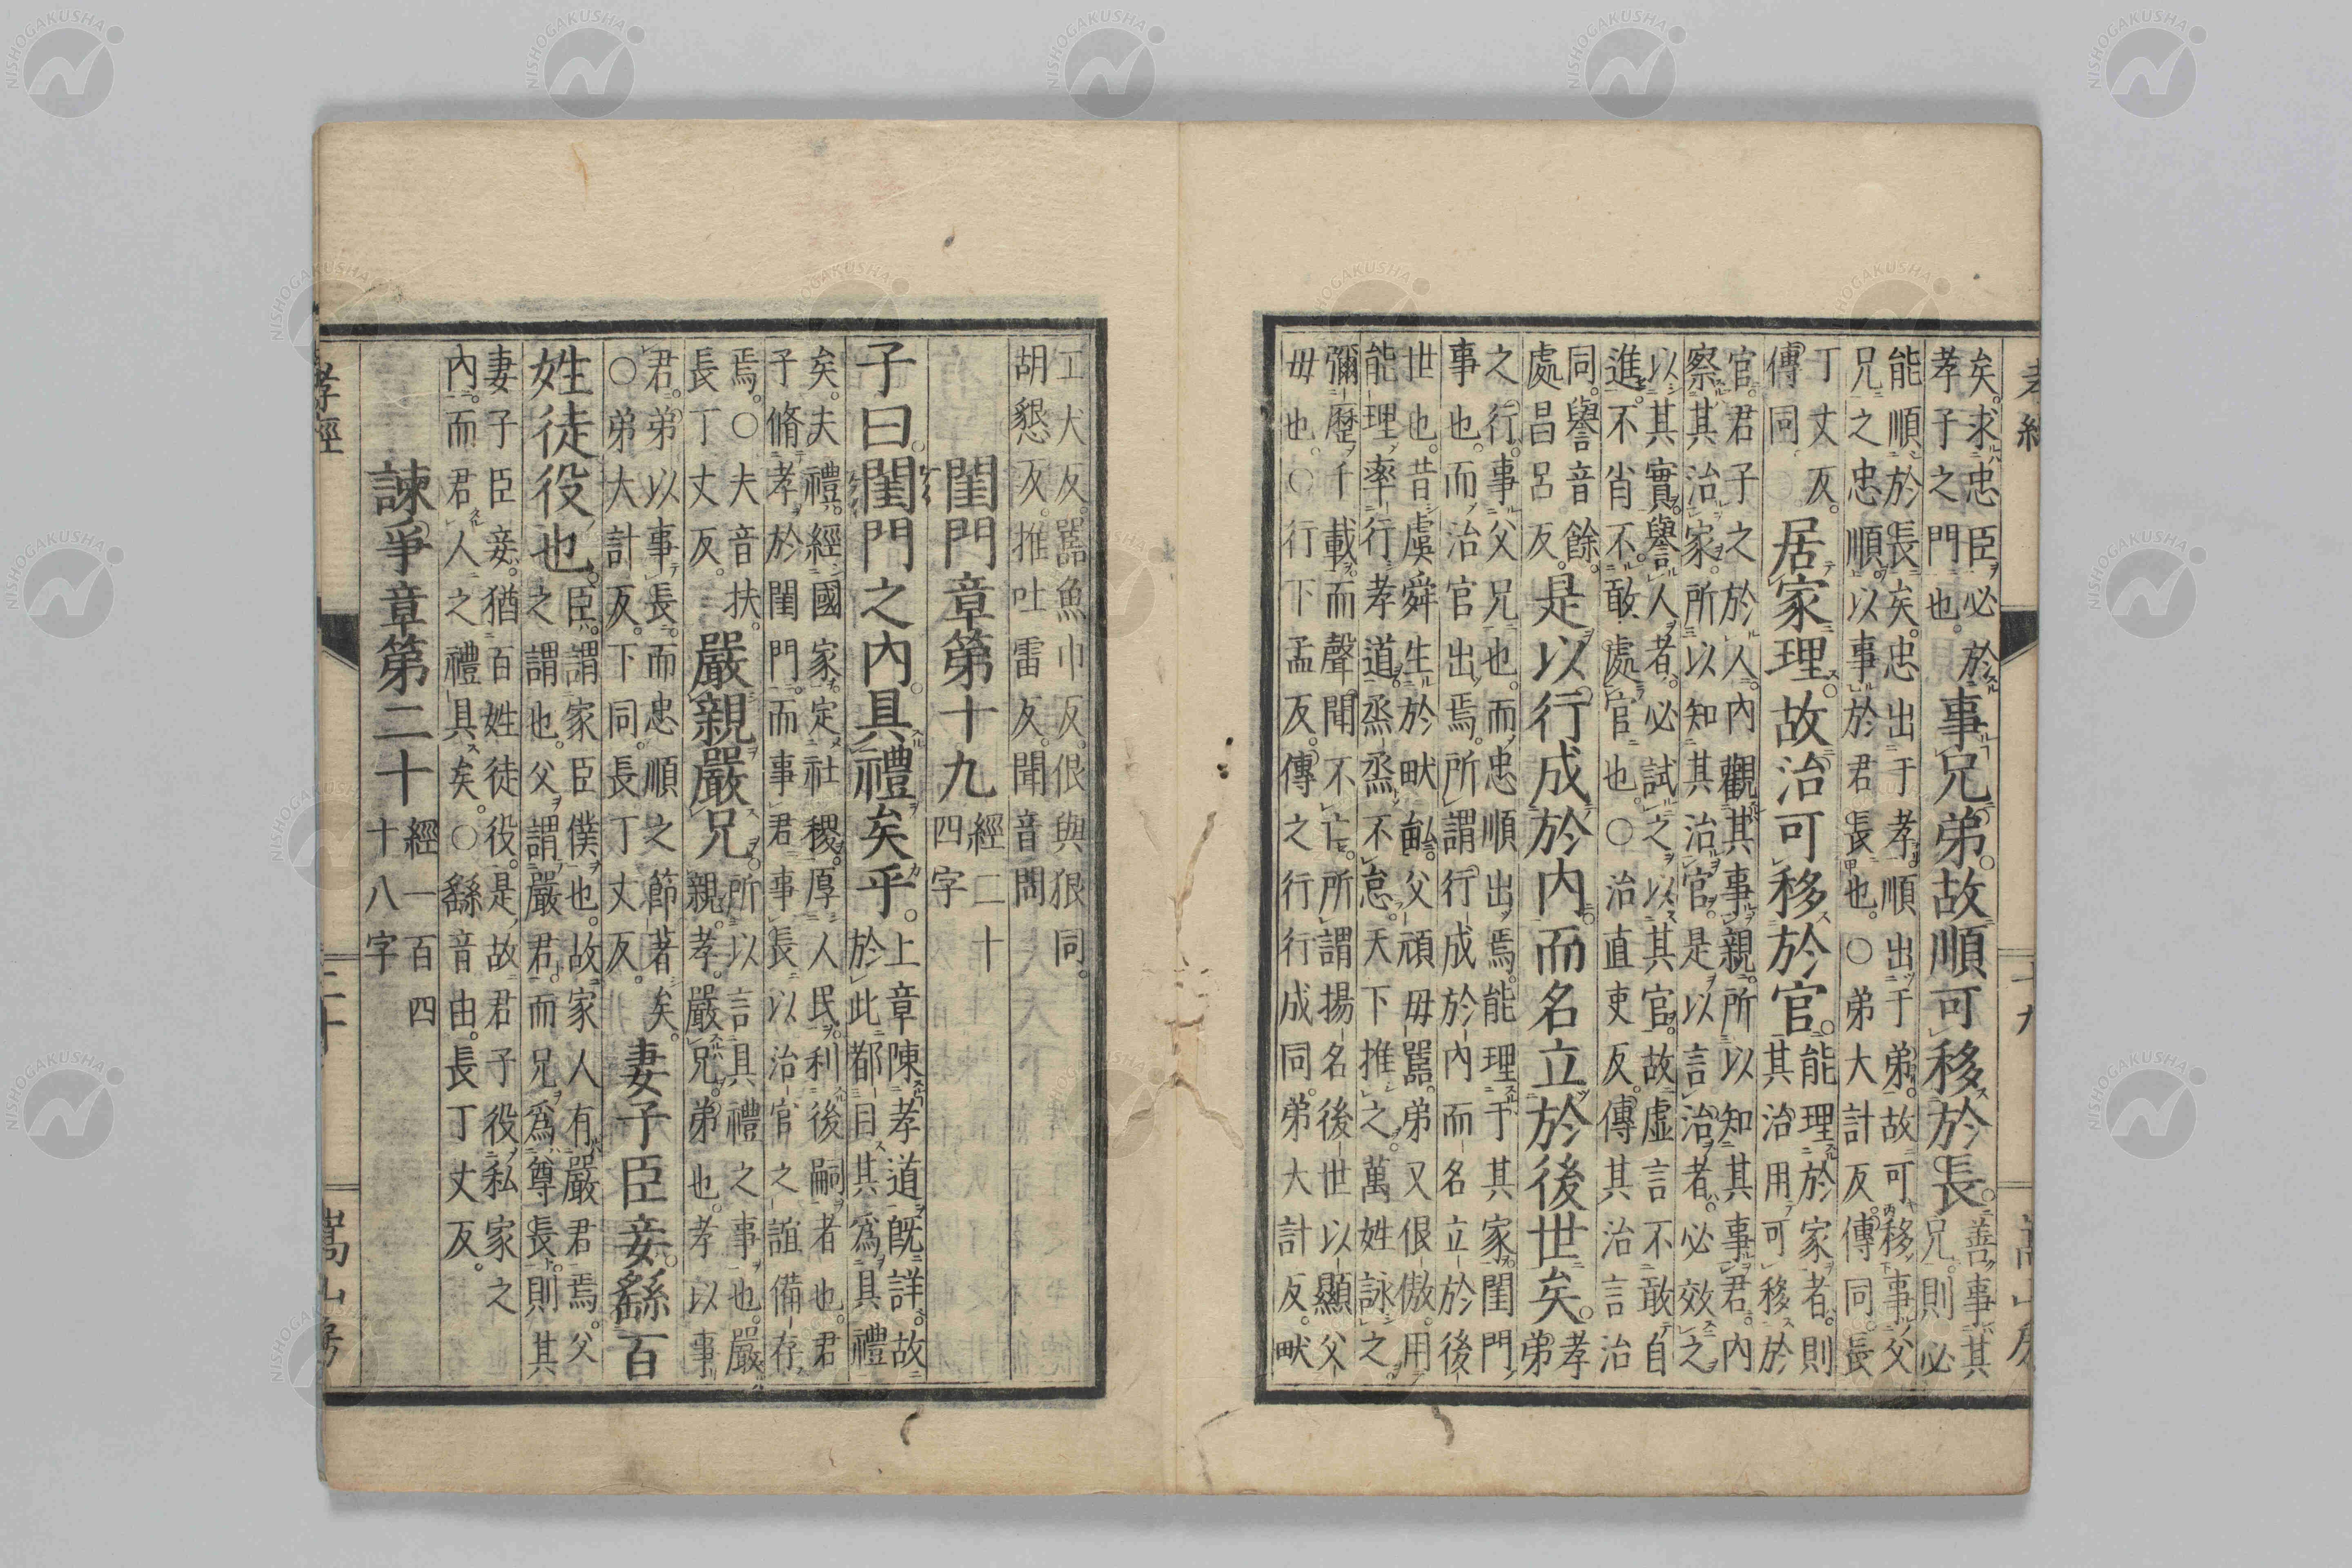 矣。求忠臣必於
孝子之門也。
事兄弟。故順可移於長。
善事其
兄。則必
能順於長矣。忠出于孝順出于弟。故可移事父
兄之忠順。以事於君長也。○弟大計反。傳同。長
丁丈反。
傳同
居家理。故治可移於官。
能理於家者。則
其治用可移於
官。君子之於人。內觀其事親。所以知其事君。內
察其治家。所以知其治官。是以言治者。必效之
以其實。譽人者。必試之以其官。故虛言不敢自
進。不肖不敢處官也。○治直吏反。傳其治言治
同。譽音餘。
處昌呂反。
是以行成於內。而名立於後世矣。
孝
弟
之行。事父兄也。而忠順出焉。能理于其家。閨門
事也。而治官出焉。所謂行成於內而名立於後
世也。昔虞舜生於畎畝。父頑毋嚚。弟又佷傲。用
能理率行孝道。烝烝不怠。天下推之。萬姓詠之。
彌歷千載。而聲聞不亡。所謂揚名後世以顯父
毋也。○行下孟反。傳之行行成同。弟大計反。畎
工犬反。嚚魚巾反。佷與狠同。
胡懇反。推吐雷反。聞音問
閨門章第十九
經二十
四字
子曰。閨門之內。具禮矣乎。
上章陳孝道既詳。故
於此都目其為具禮
矣。夫禮。經國家。定社稷。厚人民。利後嗣者也。君
子脩孝於閨門。而事君事長以治官之誼備存
焉。○夫音扶。
長丁丈反。
嚴親嚴兄。
所以言具禮之事也。嚴
親。孝。嚴兄。弟也。孝以事
君。弟以事長。而忠順之節著矣。
○弟大計反。下同。長丁丈反。
妻子臣妾。繇百
姓徒役也。
臣。謂家臣僕也。故家人有嚴君焉。父
之謂也。父謂嚴君。而兄為尊長。則其
妻子臣妾。猶百姓徒役。是故君子役私家之
內。而君人之禮具矣。○繇音由。長丁丈反。
諫爭章第二十
經一百四
十八字